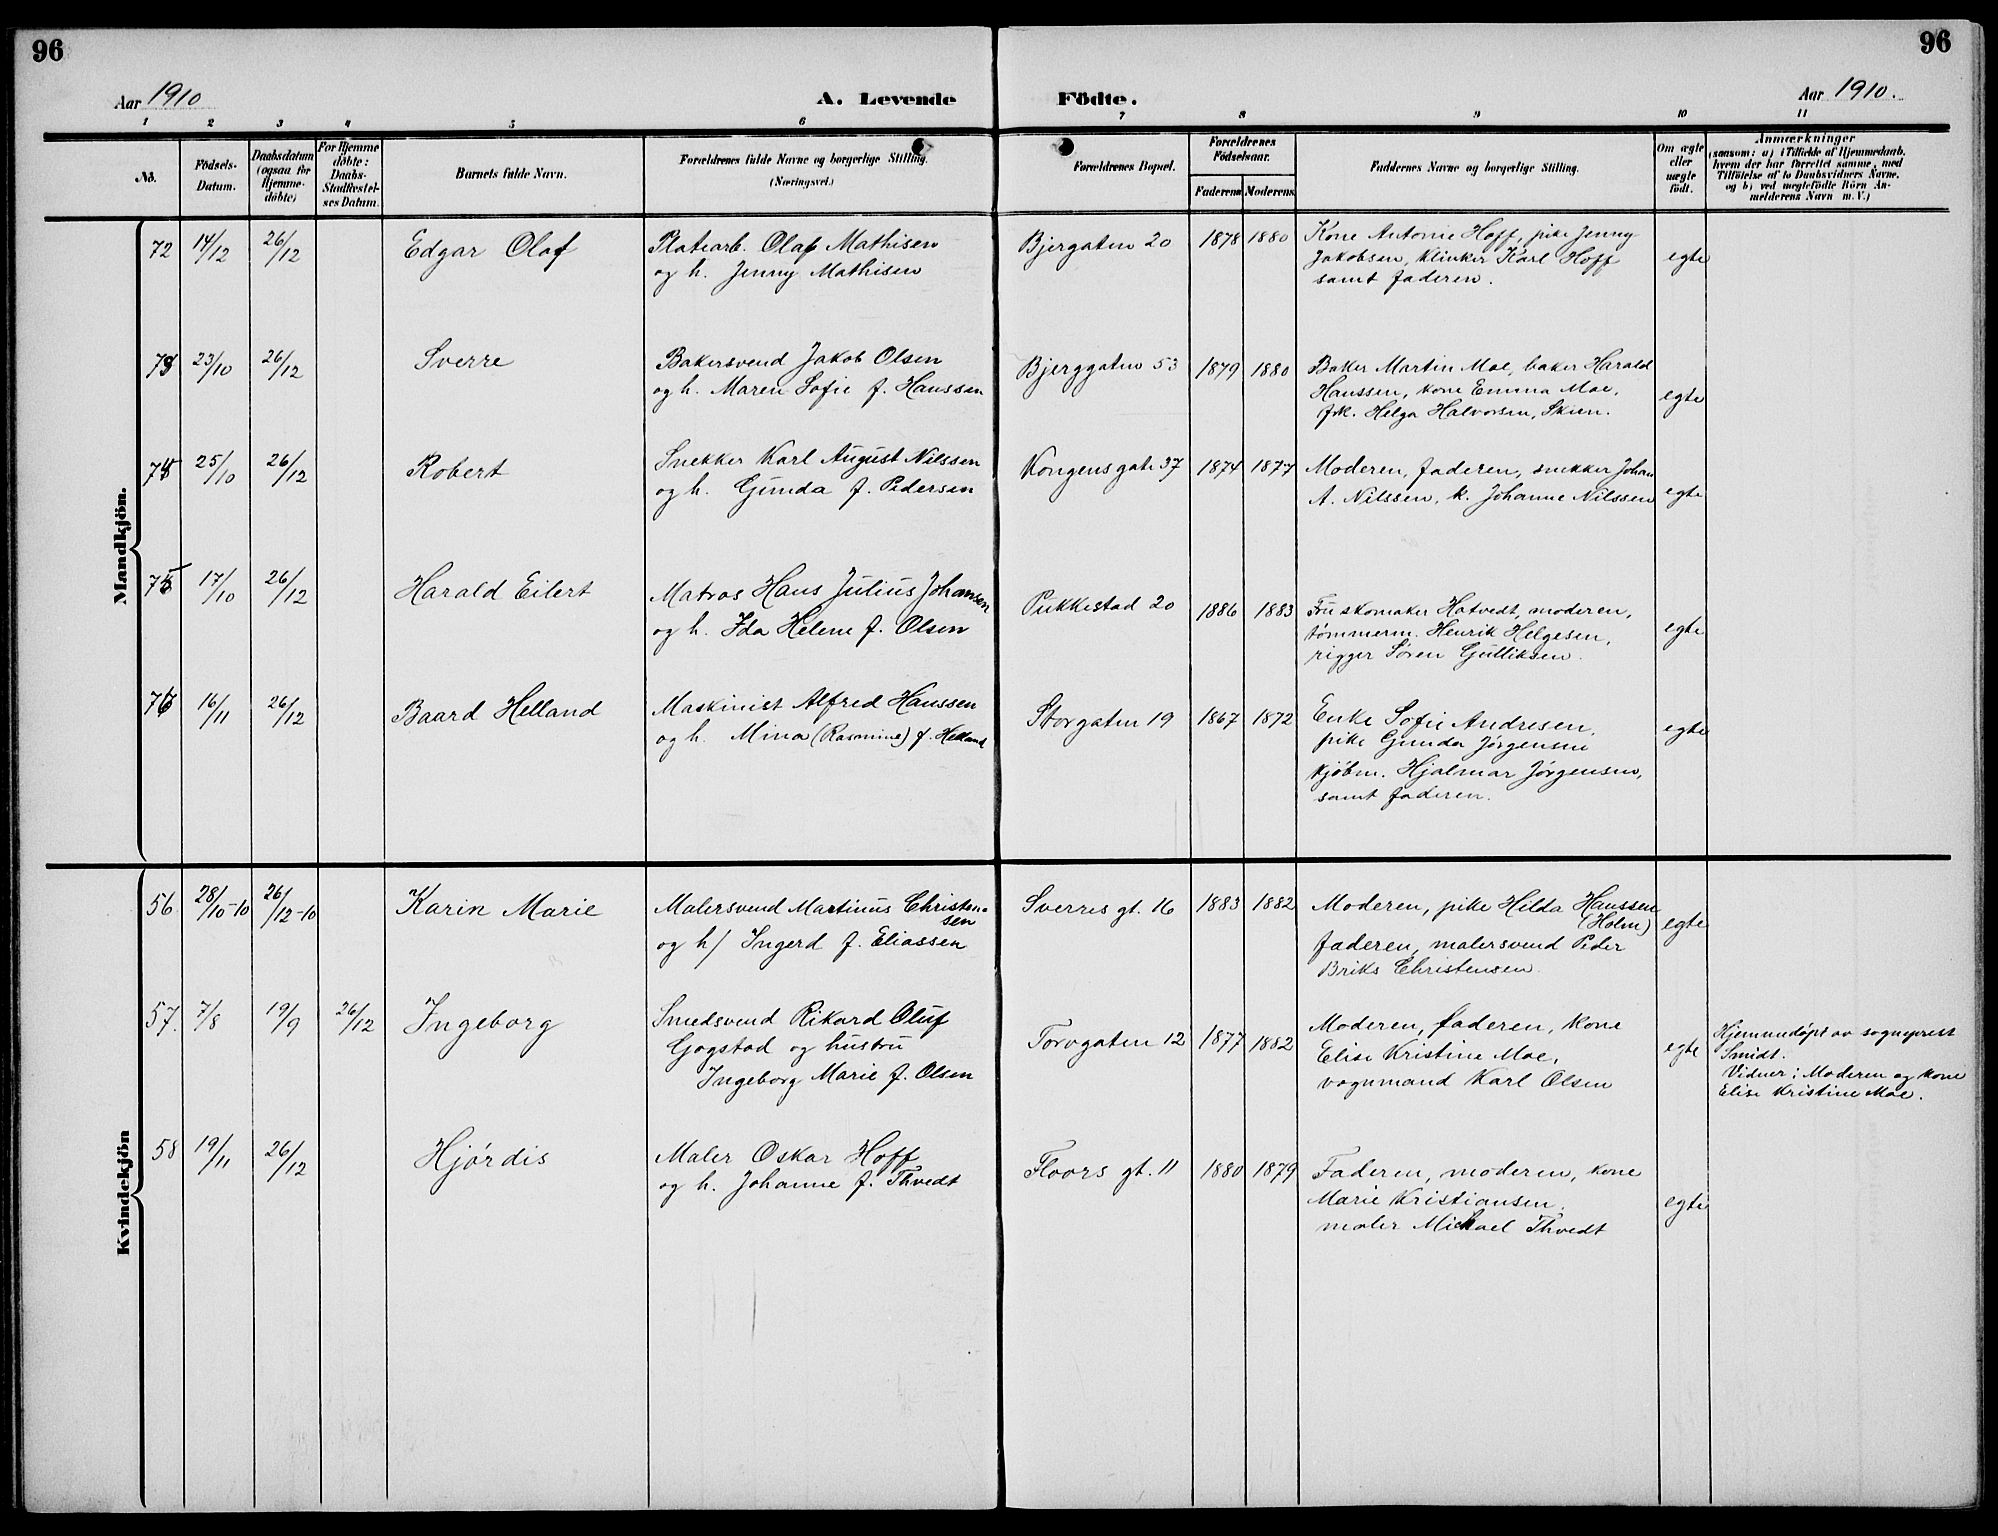 96
96
Aar 1910
A. Levende Födte.
Aar 1910.
1 2 3 4 5 6 7 8 9 10 11
No.
Födsels-
Datum.
Daabsdatum
(ogsaa for
Hjemme-
döbte)
For Hjemme
döbte:
Daabs-
Stadfæstel-
ses Datum.
Barnets fulde Navn.
Forældrenes fulde Navne og borgerlige Stilling.
(Næringsvei.)
Forældrenes Bopæl.
Forældrenes
Födselsaar.
Faderens Moderens
Faddernes Navne og borgerlige Stilling.
Om ægte
eller
uægte
födt.
Anmærkninger
(saasom: a) i Tilfælde af Hjemmedaab,
hvem der har forrettet samme, med
Tilföielse af to Daabsvidners Navne,
og b) ved uægtefödte Börn An-
melderens Navn m. V.)
Mandkjön.
72 14/12 26/12 Edgar Olaf
Platearb. Olaf Mathisen
og h. Jenny Mathisen
Bjergaten 20 1878 1880
Kone Antonie Hoff, pike Jenny
Jakobsen, klinker Karl Hoff
samt faderen.
egte
73 23/10 26/12 Sverre
Bakersvend Jakob Olsen
og h. Maren Sofie f. Hanssen
Bjerggaten 53 1879 1880
Baker Martin Moe, baker Harald
Hanssen, kone Emma Moe,
frk. Helga Halvorsen, Skien.
egte
74 25/10 26/12 Robert
Snekker Karl August Nilssen
og h. Gunda f. Pedersen
Kongensgate 37 1874 1877
Moderen, faderen, snekker Johan
A. Nilssen, k. Johanne Nilssen
egte
75 17/10 26/12 Harald Eilert
Matros Hans Julius Johansen
og h. Ida Helene f. Olsen
Pukkestad 20 1886 1883
Fru skomaker Hotvedt, moderen,
tømmerm. Henrik Helgesen,
rigger Søren Gulliksen.
egte
76 16/11 26/12 Baard Helland
Maskinist Alfred Hanssen
og h. Mina (Rasmine) f. Helland
Storgaten 19 1867 1872
Enke Sofie Andresen,
pike Gunda Jørgensen
kjøbm. Hjalmar Jørgensen,
samt faderen.
egte
Kvindekjön
56 28/10-10 26/12-10 Karin Marie
Malersvend Martinus Christen-
sen
og h/ Ingerd f. Eliassen
Sverres gt. 16 1883 1882
Moderen, pike Hilda Hanssen
(Holm)
faderen, malersvend Peder
Briks Christensen.
egte
57. 7/8 19/9 26/12 Ingeborg
Smedsvend Rikard Oluf
Gogstad og hustru
Ingeborg Marie f. Olsen
Torvgaten 12 1877 1882
Moderen, faderen, kone
Elise Kristine Moe,
vognmand Karl Olsen
egte
Hjemmedøpt av sogneprest
Smidt.
Vidner: Moderen og kone
Elise Kristine Moe.
58 19/11 26/12 Hjørdis
Maler Oskar Hoff
og h. Johanne f. Thvedt
Floors gt. 11 1880 1879
Faderen, moderen, kone
Marie Kristiansen,
maler Michael Thvedt
egte